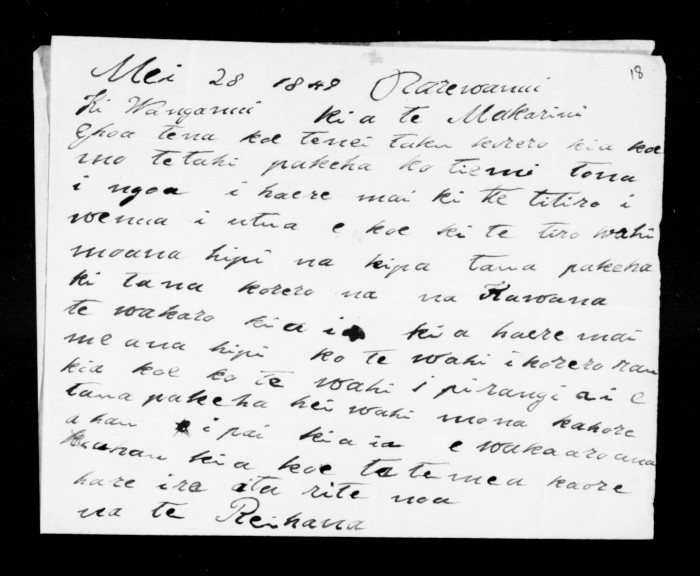 Mei 28 1849 Rarewanui
18
Ki Wanganui kia te Makarini
Ehoa tena koe tenei taku korero kia koe
mo tetahi pakeha ko tiemi tona
i ngoa i haere mai ki te titiro i
wenua i utua e koe ki te tiro wahi
moana hipi na kipa tana pakeha
ki tana korero na na Kawana
te wakaro kia ia kia haere mai
me ana hipi ko te wahi i korero ran
kia koe ko te wahi i pirangi ai e
tana pakeha hei wahi mona kahore
ahau i pai kia ia e wakaaro ana
kia koe ta te mea kaore
hare ira ata rite noa
na te Reihana